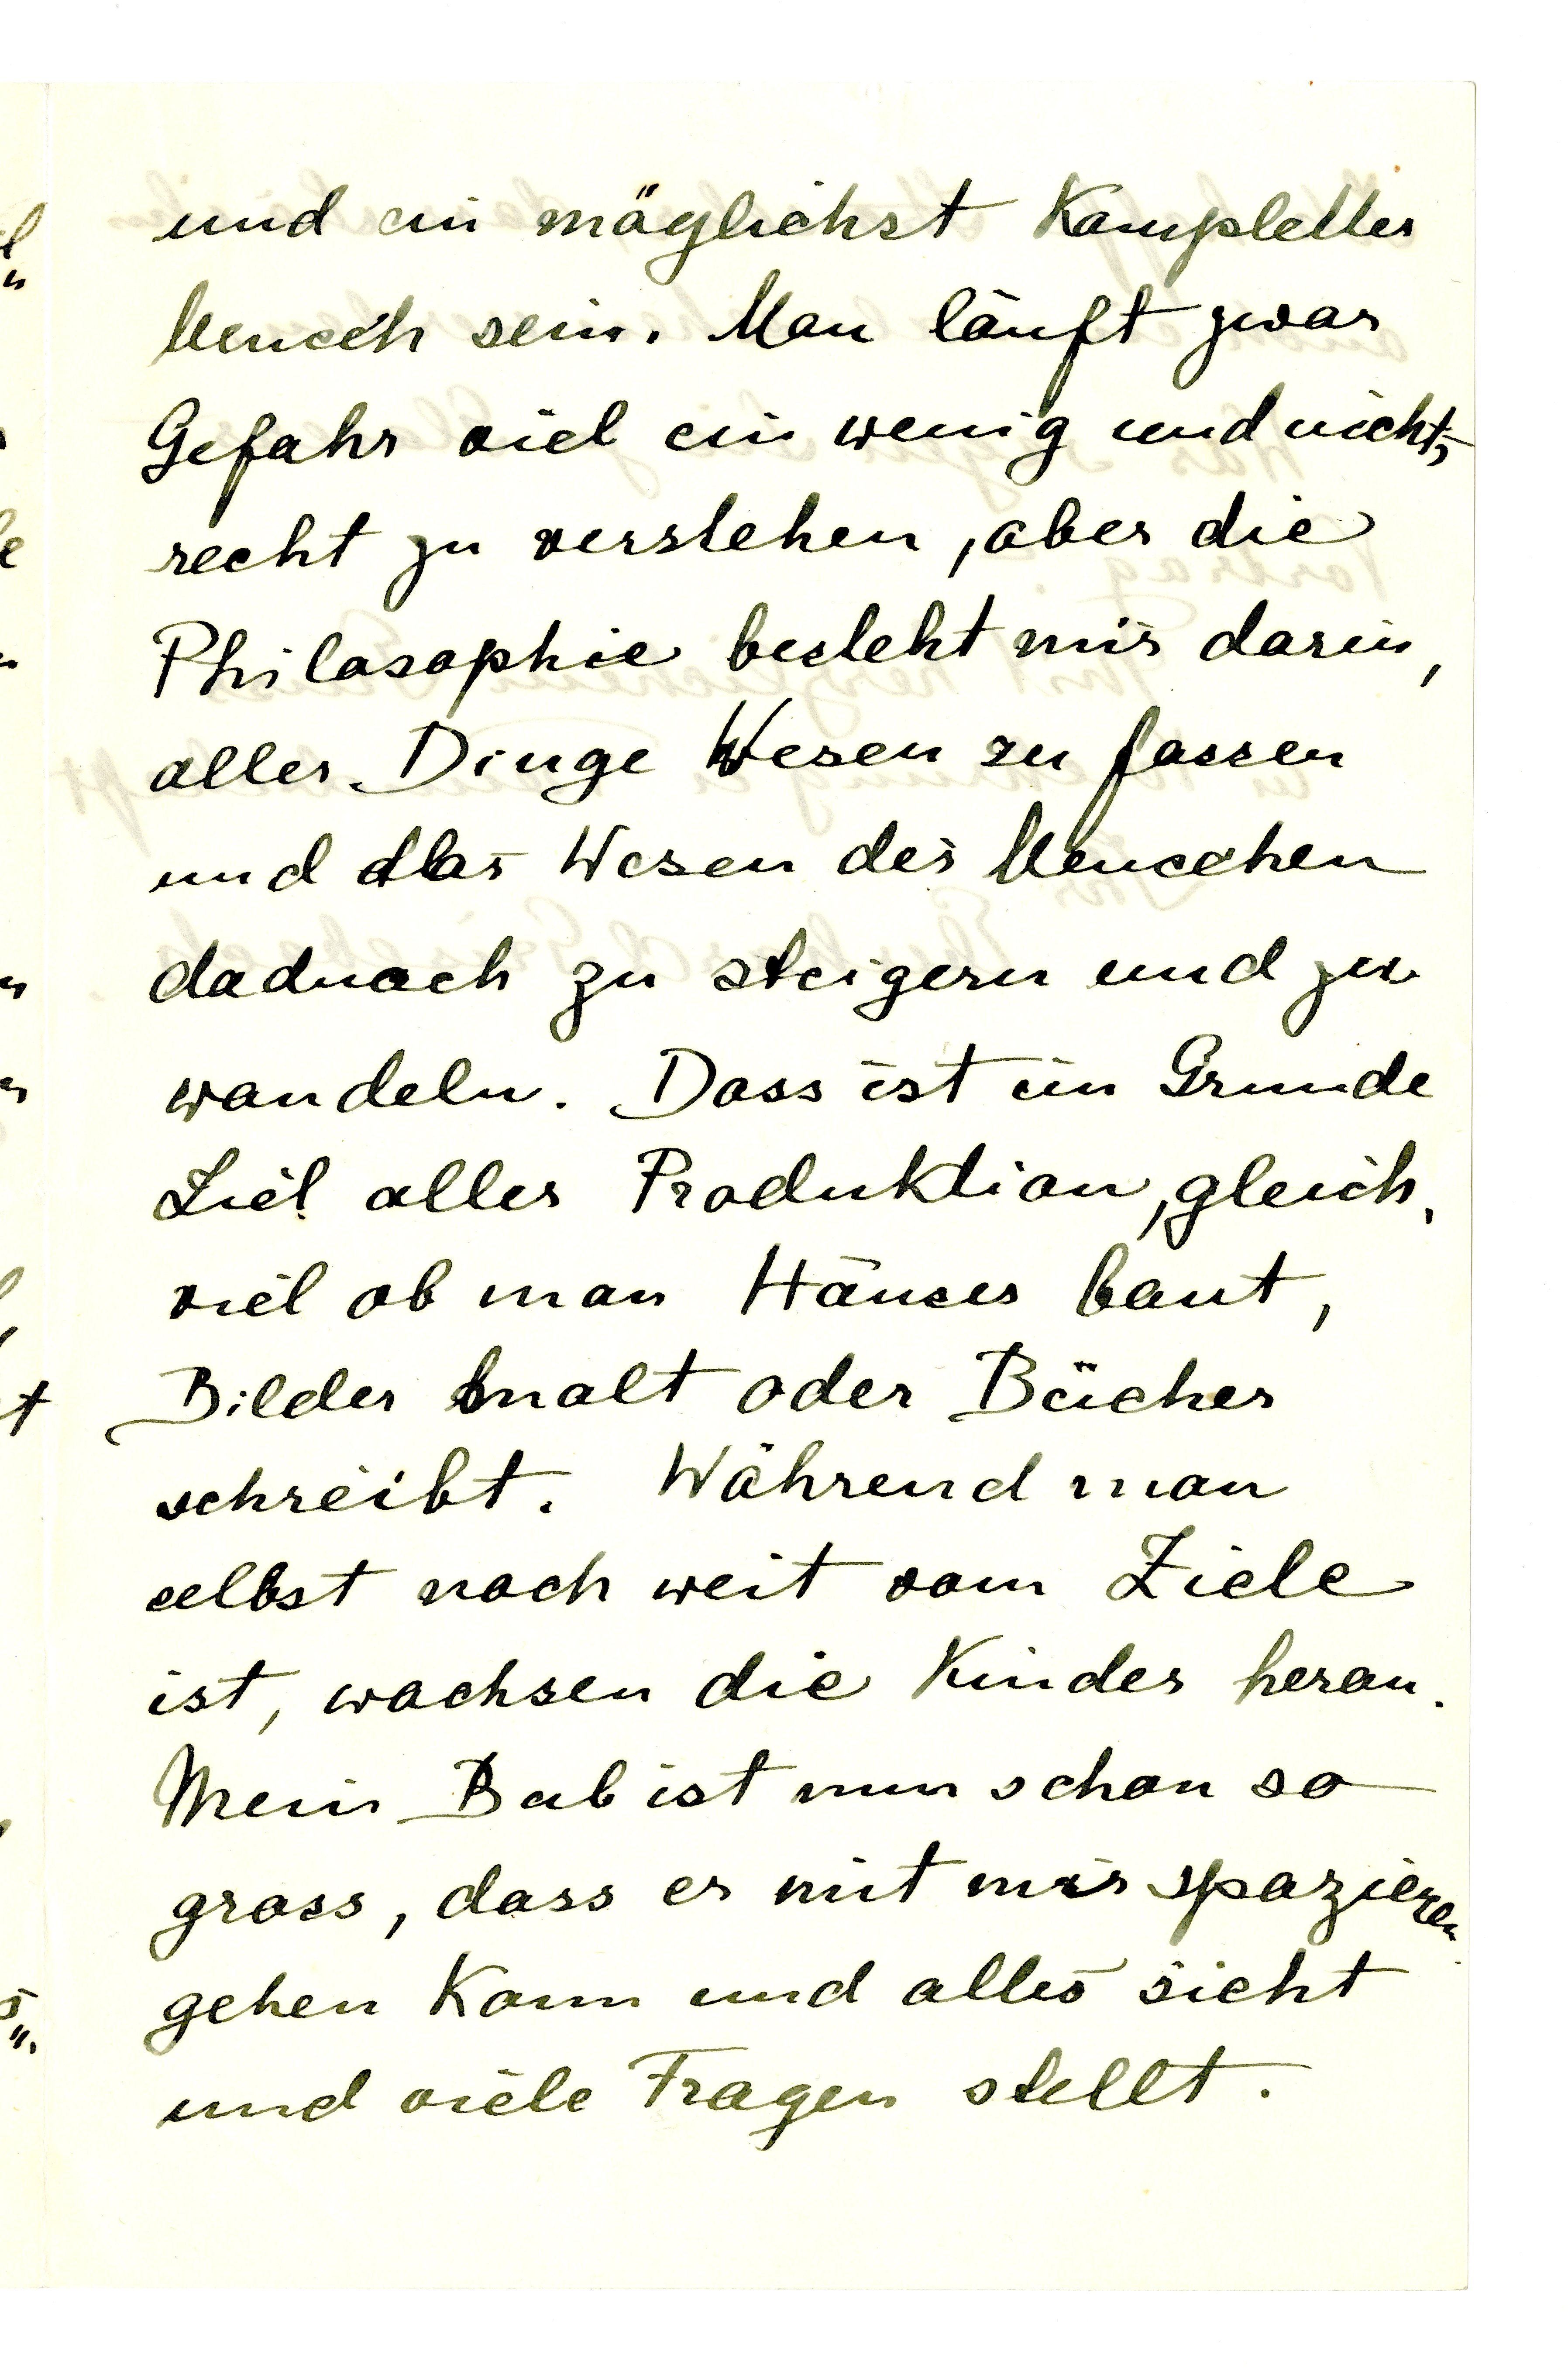 und ein möglichst kompletter
Mensch sein. Man läuft zwar
Gefahr viel ein wenig und nichts
recht zu verstehen, aber die
Philosophie besteht mir darin,
aller Dinge Wesen zu fassen
und das Wesen des Menschen
dadnach zu steigern und zu
wandeln. Dass ist im Grunde
Ziel aller Produktion, gleich,
viel ob man Häuser baut,
Bilder malt oder Bücher
schreibt. Während man
selbst noch weit vom Ziele
ist, wachsen die Kinder heran.
Mein Bub ist nun schon so
gross, dass er mit mir spazieren
gehen kann und alles sieht
und viele Fragen stellt.